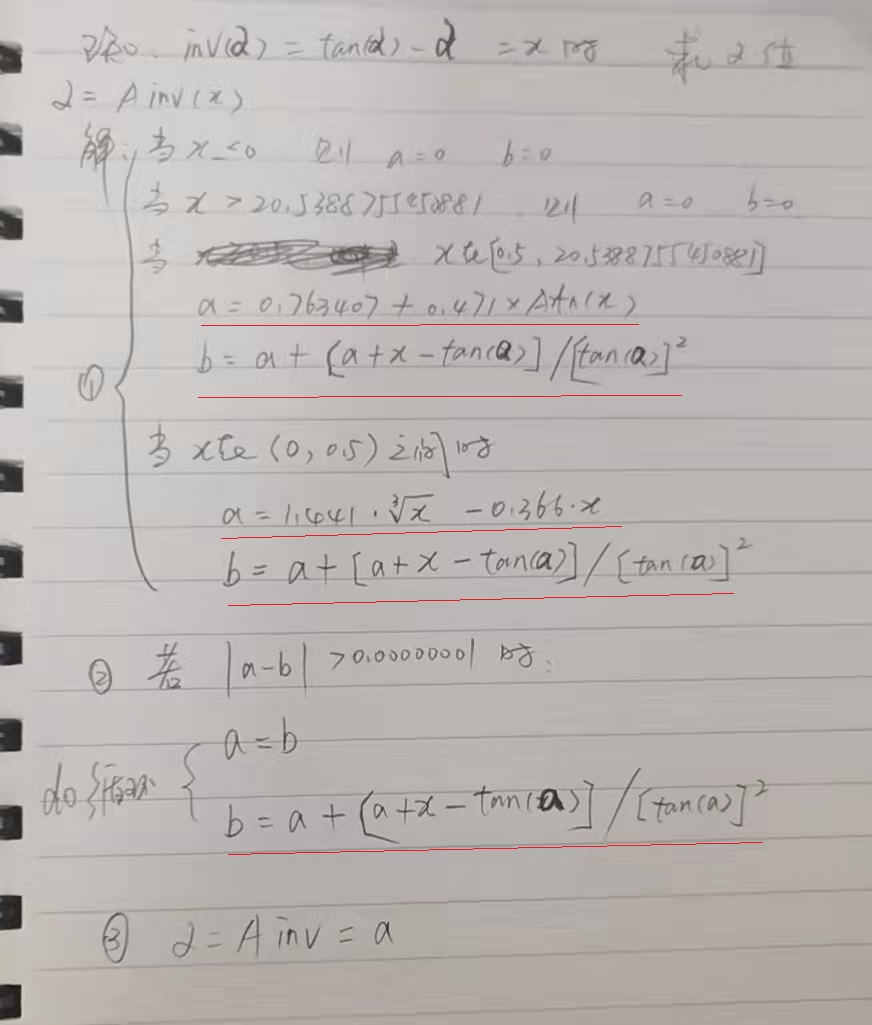 已知. inv(α) = tan(α) - α = x 时 求α值
α = Ainv(x)
解: 当 x<0 则 a=0 b=0
当 x > 20.538875545088 1 则 a=0 b=0
当 x在[0.5, 20.5388755450881]
a = 0.763407 + 0.471×Atn(x)
b = a + [a+x-tan(a)]/[tan(a)]²
①
当 x在(0, 0.5)之间时
a = 1.441·∛x - 0.366·x
b = a+[a+x-tan(a)]/[tan(a)]²
② 若 |a-b| >0.00000001 时.
a=b
do循环
b = a + [a+x-tan(a)]/[tan(a)]²
③ α = Ainv = a